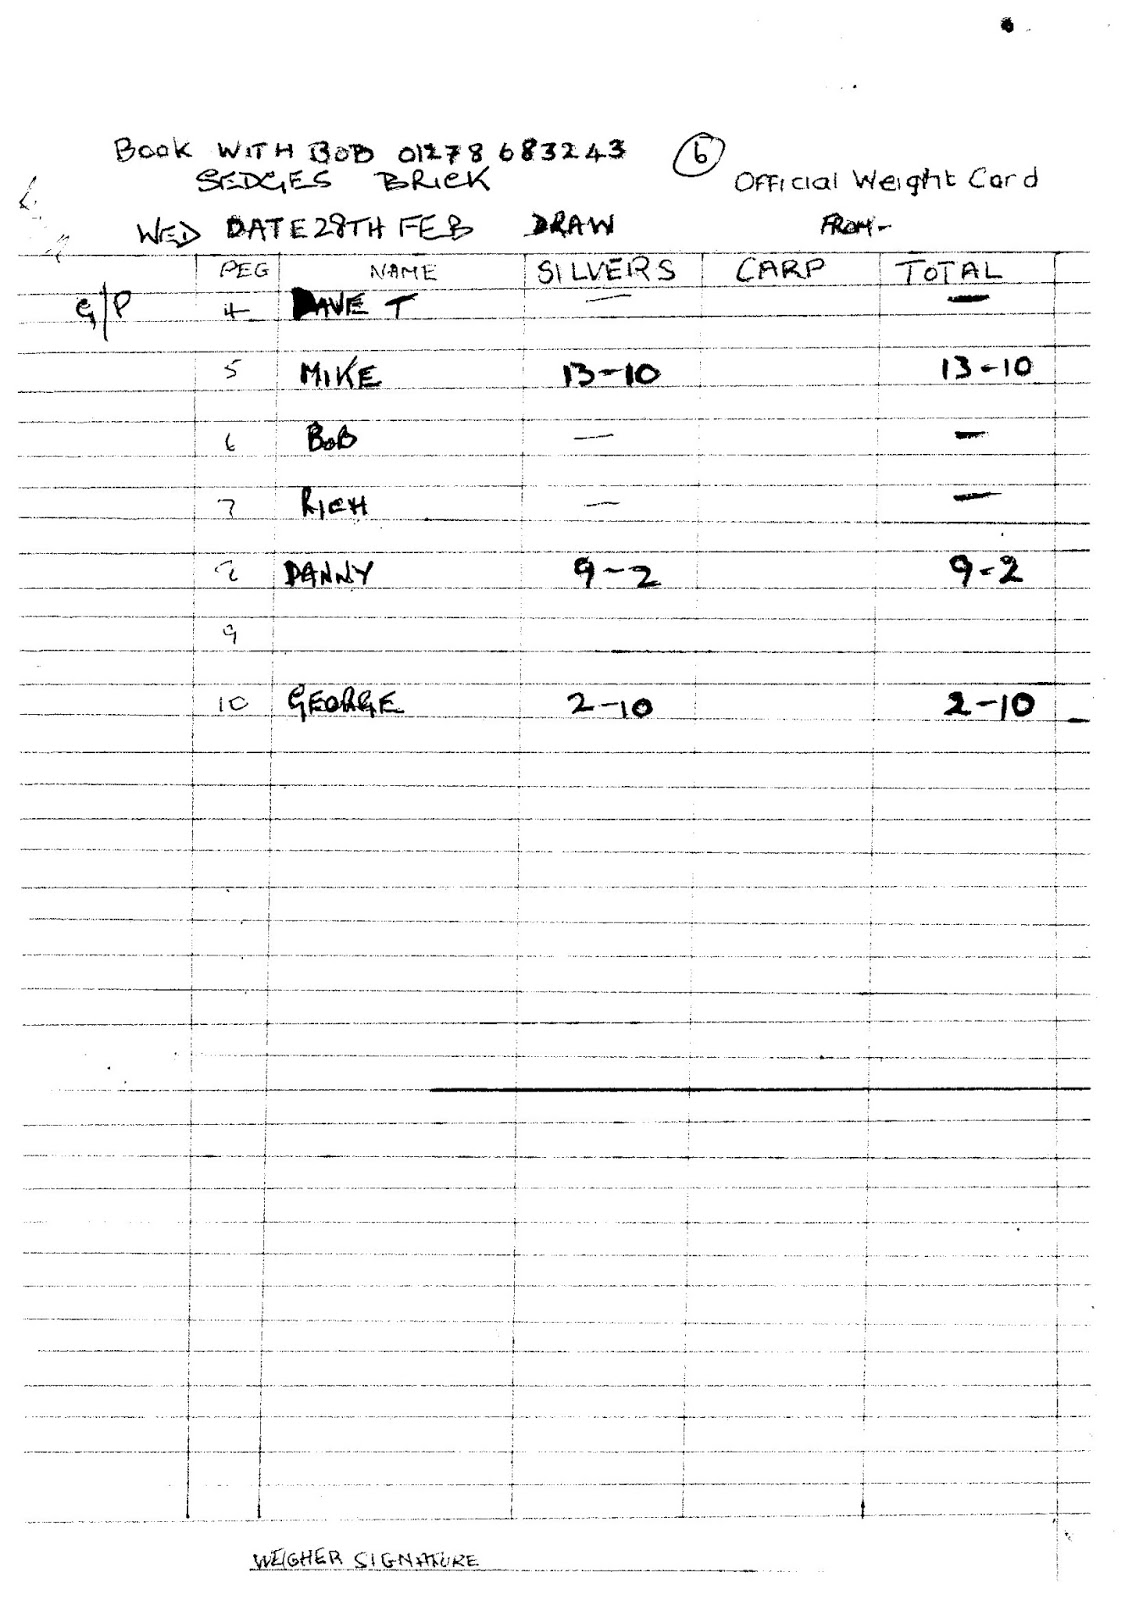 Book WITH BOB 01278 683243 6
SEDGES BRICK Official Weight Card
WED DATE 28TH FEB DRAW FROM-
PEG NAME SILVERS CARP TOTAL
G/P 4 DAVE T — —
5 MIKE 13-10 13-10
6 BOB — —
7 RICH — —
DANNY 9-2 9-2
9
10 GEORGE 2-10 2-10
WEIGHER SIGNATURE